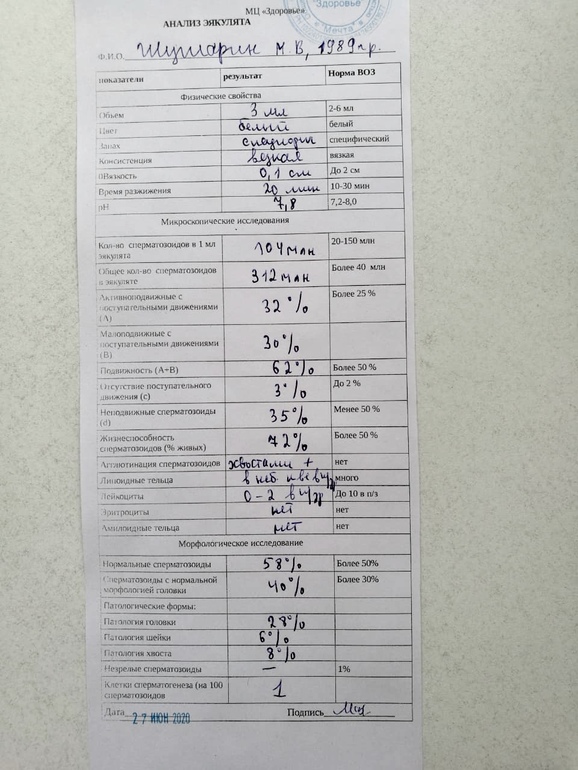 МЦ «Здоровье»
Здоровье
Мечта
АНАЛИЗ ЭЯКУЛЯТА
Ф.И.О. М. В, 1989 г.р.
показатели результат Норма ВОЗ
Физические свойства
Объем 3 мл 2-6 мл
Цвет белый белый
Запах специфич специфический
Консистенция вязкая вязкая
0Вязкость 0,1 см До 2 см
Время разжижения 20 мин 10-30 мин
pH 7,8 7,2-8,0
Микроскопические исследования
Кол-во сперматозоидов в 1 мл 104 млн 20-150 млн
эякулята
Общее кол-во сперматозоидов 312 млн Более 40 млн
в эякуляте
Активноподвижные с 32 % Более 25 %
поступательными движениями
(А)
Малоподвижные с 30 %
поступательными движениями
(В)
Подвижность (А+В) 62 % Более 50 %
Отсутствие поступательного 3 % До 2 %
движения (с)
Неподвижные сперматозоиды 35 % Менее 50 %
(d)
Жизнеспособность 72 % Более 50 %
сперматозоидов (% живых)
Агглютинация сперматозоидов хвостами + нет
Липоидные тельца в неб. кол-ве много
Лейкоциты 0-2 в п/зр До 10 в п/з
Эритроциты нет нет
Амилоидные тельца нет нет
Морфологическое исследование
Нормальные сперматозоиды 58 % Более 50%
Сперматозоиды с нормальной 40 % Более 30%
морфологией головки
Патологические формы:
Патология головки 28 %
Патология шейки 6 %
Патология хвоста 8 %
Незрелые сперматозоиды — 1%
Клетки сперматогенеза (на 100 1
сперматозоидов
Дата 27 ИЮН 2020 Подпись